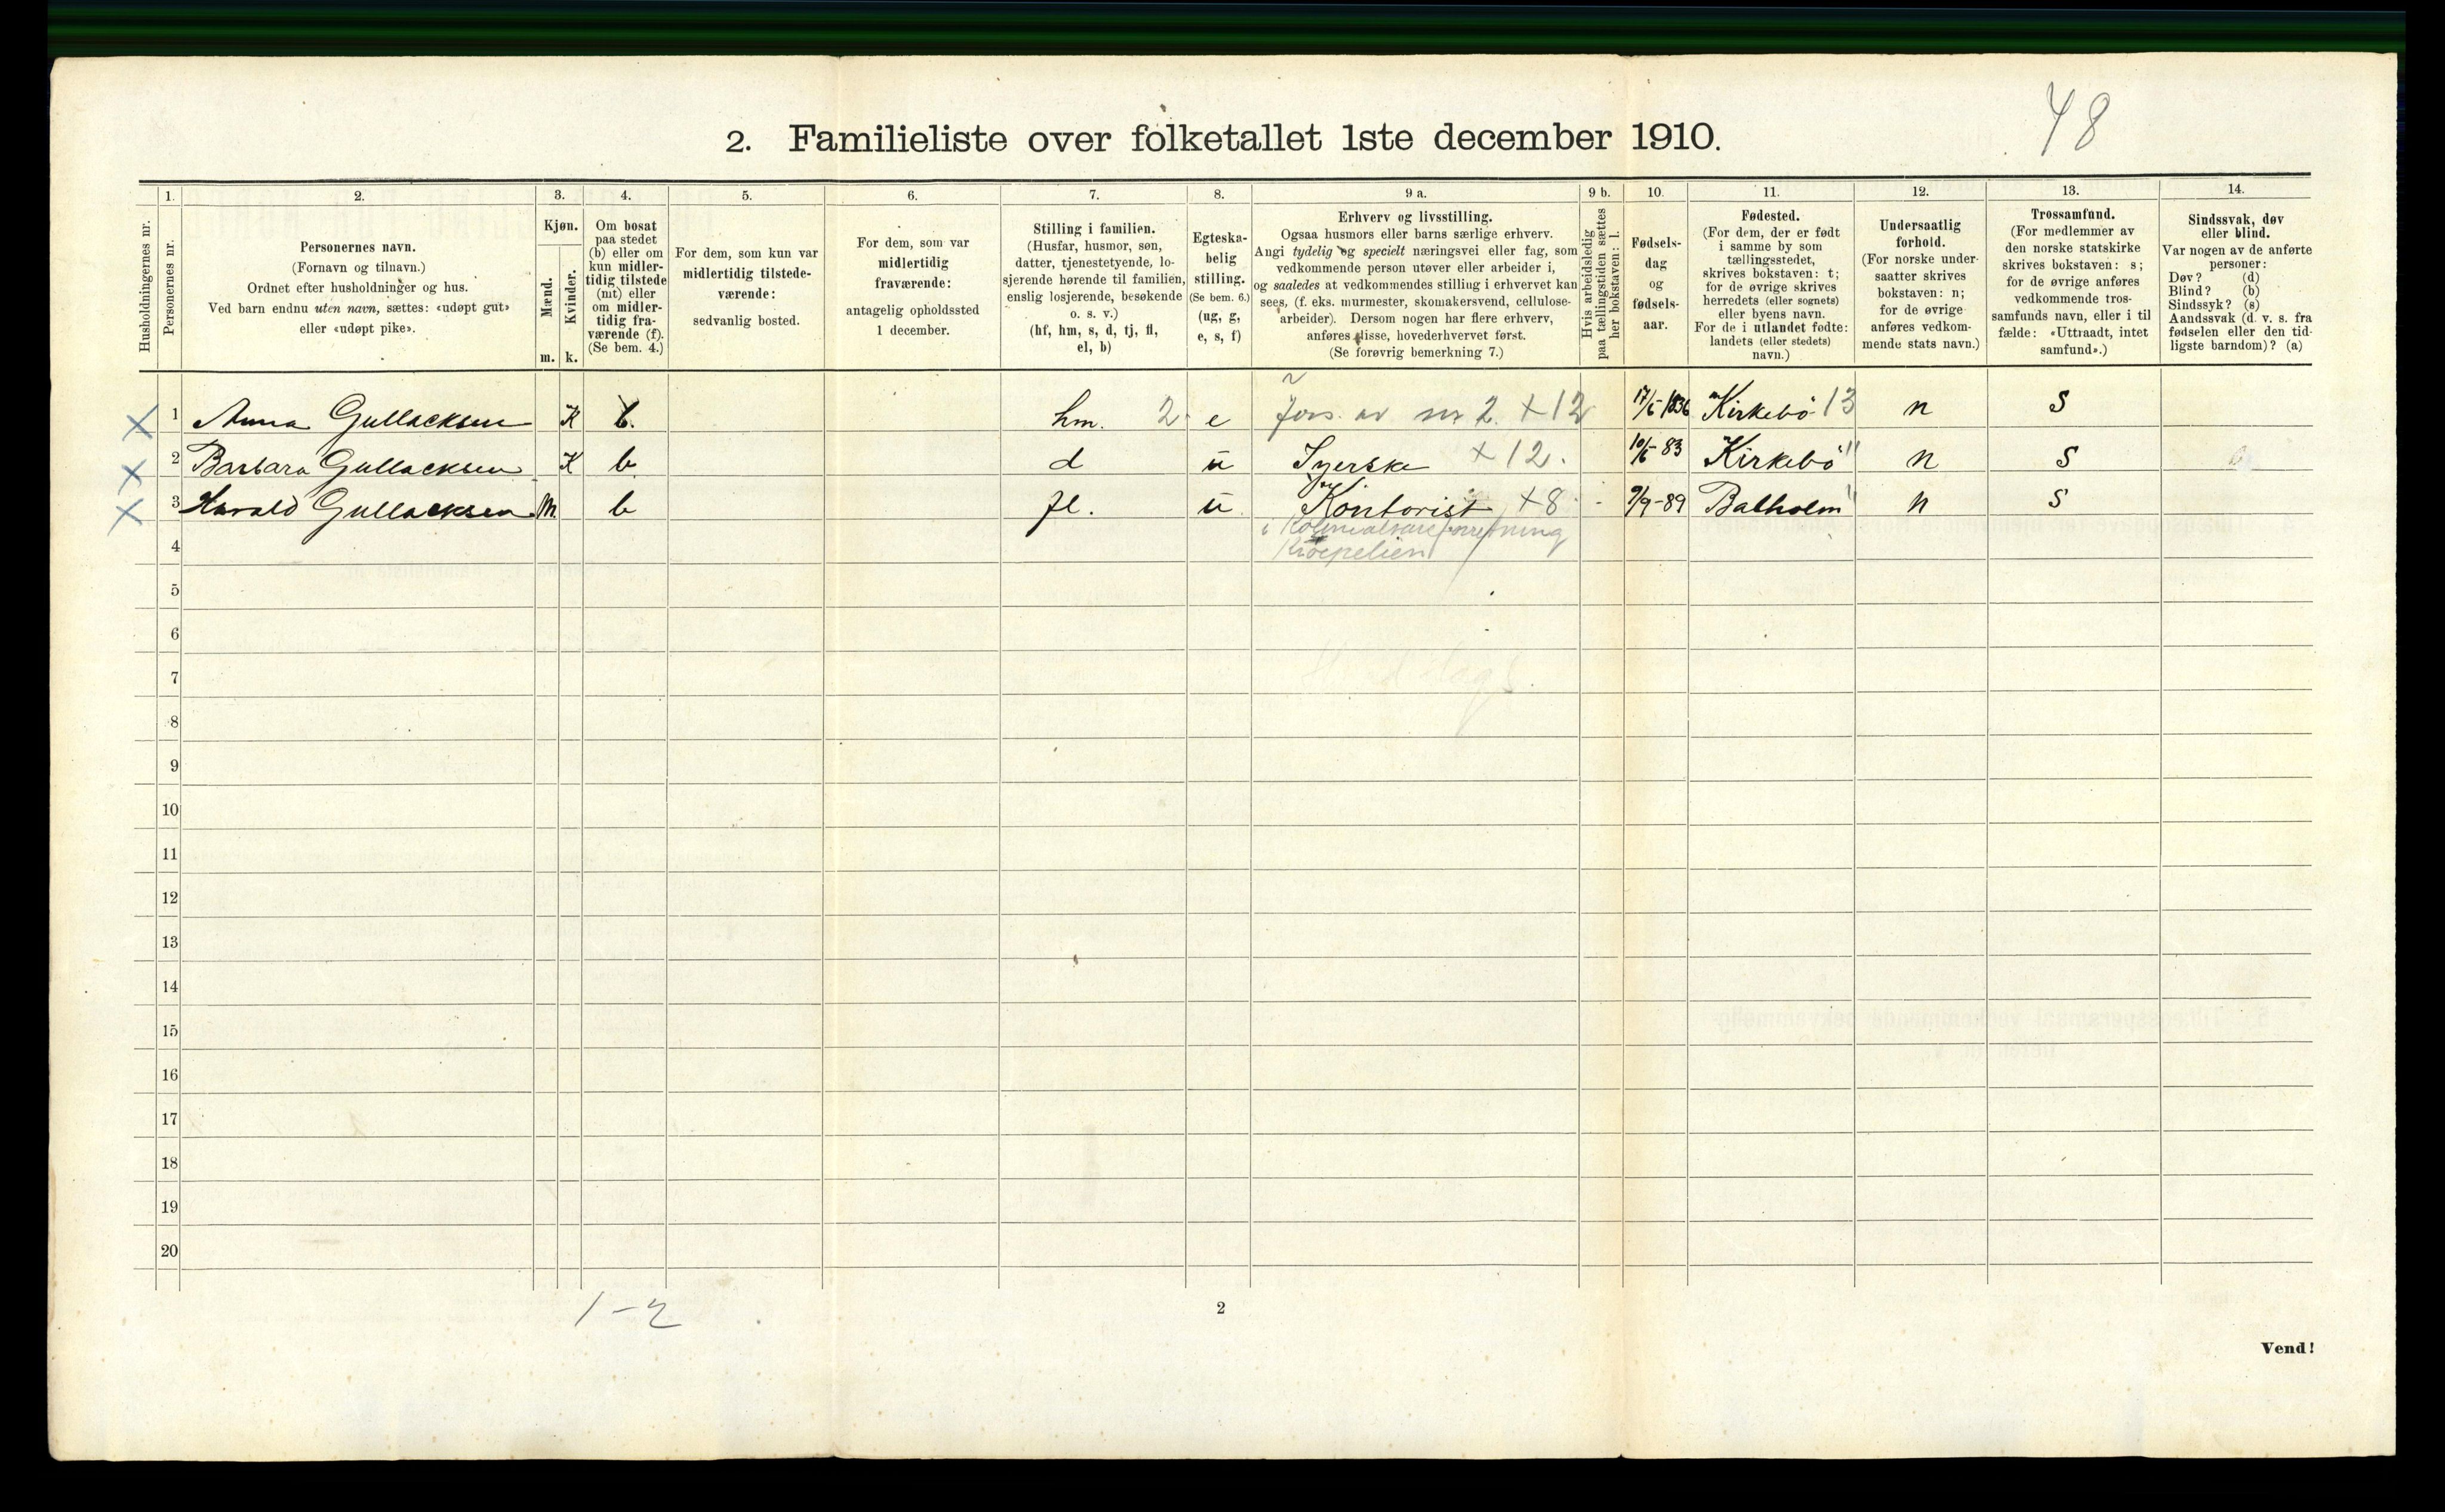 48
2. Familieliste over folketallet 1ste december 1910.
1. 2. 3. 4. 5. 6. 7. 8. 9 a. 9 b. 10. 11. 12. 13. 14.
Husholdningernes nr.
Personernes nr.
Personernes navn.
(Fornavn og tilnavn.)
Ordnet efter husholdninger og hus.
Ved barn endnu uten navn, sættes: «udøpt gut»
eller «udøpt pike».
Kjøn.
Mænd.
Kvinder.
m. k.
Om bosat
paa stedet
(b) eller om
kun midler-
tidig tilstede
(mt) eller
om midler-
tidig fra-
værende (f).
(Se bem. 4.)
For dem, som kun var
midlertidig tilstede-
værende:
sedvanlig bosted.
For dem, som var
midlertidig
fraværende:
antagelig opholdssted
1 december.
Stilling i familien.
(Husfar, husmor, søn,
datter, tjenestetyende, lo-
sjerende hørende til familien,
enslig losjerende, besøkende
o. s. v.)
(hf, hm, s, d, tj, fl,
el, b)
Egteska-
belig
stilling.
(Se bem. 6.)
(ug, g,
e, s, f)
Erhverv og livsstilling.
Ogsaa husmors eller barns særlige erhverv.
Angi tydelig og specielt næringsvei eller fag, som
vedkommende person utøver eller arbeider i,
og saaledes at vedkommendes stilling i erhvervet kan
sees, (f. eks. murmester, skomakersvend, cellulose-
arbeider). Dersom nogen har flere erhverv,
anføres disse, hovederhvervet først.
(Se forøvrig bemerkning 7.)
Hvis arbeidsledig
paa tællingstiden sættes
her bokstaven: l.
Fødsels-
dag
og
fødsels-
aar.
Fødested.
(For dem, der er født
i samme by som
tællingsstedet,
skrives bokstaven: t;
for de øvrige skrives
herredets (eller sognets)
eller byens navn.
For de i utlandet fødte:
landets (eller stedets)
navn.)
Undersaatlig
forhold.
(For norske under-
saatter skrives
bokstaven: n;
for de øvrige
anføres vedkom-
mende stats navn.)
Trossamfund.
(For medlemmer av
den norske statskirke
skrives bokstaven: s;
for de øvrige anføres
vedkommende tros-
samfunds navn, eller i til
fælde: «Uttraadt, intet
samfund».)
Sindssvak, døv
eller blind.
Var nogen av de anførte
personer:
Døv? (d)
Blind? (b)
Sindssyk? (s)
Aandssvak (d. v. s. fra
fødselen eller den tid-
ligste barndom)? (a)
X 1 Anna Gullacksen K b. hm. 2 e Fors. av nr 2. +12 1836 Kirkebö 13 n s
X 2 Barbara Gullacksen K b d u Syerske +12. 83 Kirkebö " n s
X 3 Harald Gullacksen M b fl. u Kontorist +8 9/9-89 Balholm " n s
i Kolonialvareforretning
4 Kroepelien
5
6
7
8
9
10
11
12
13
14
15
16
17
18
19
20
1-2
2
Vend!